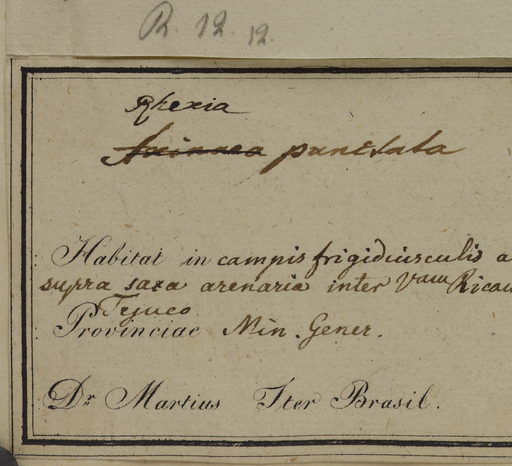 R. 12. 12.
Rhexia
Axinaea punctata
Habitat in campis frigidiusculis a
supra saxa arenaria inter Vam Rica
Tejuco
Provinciae Min. Gener.
Dr Martius Iter Brasil.